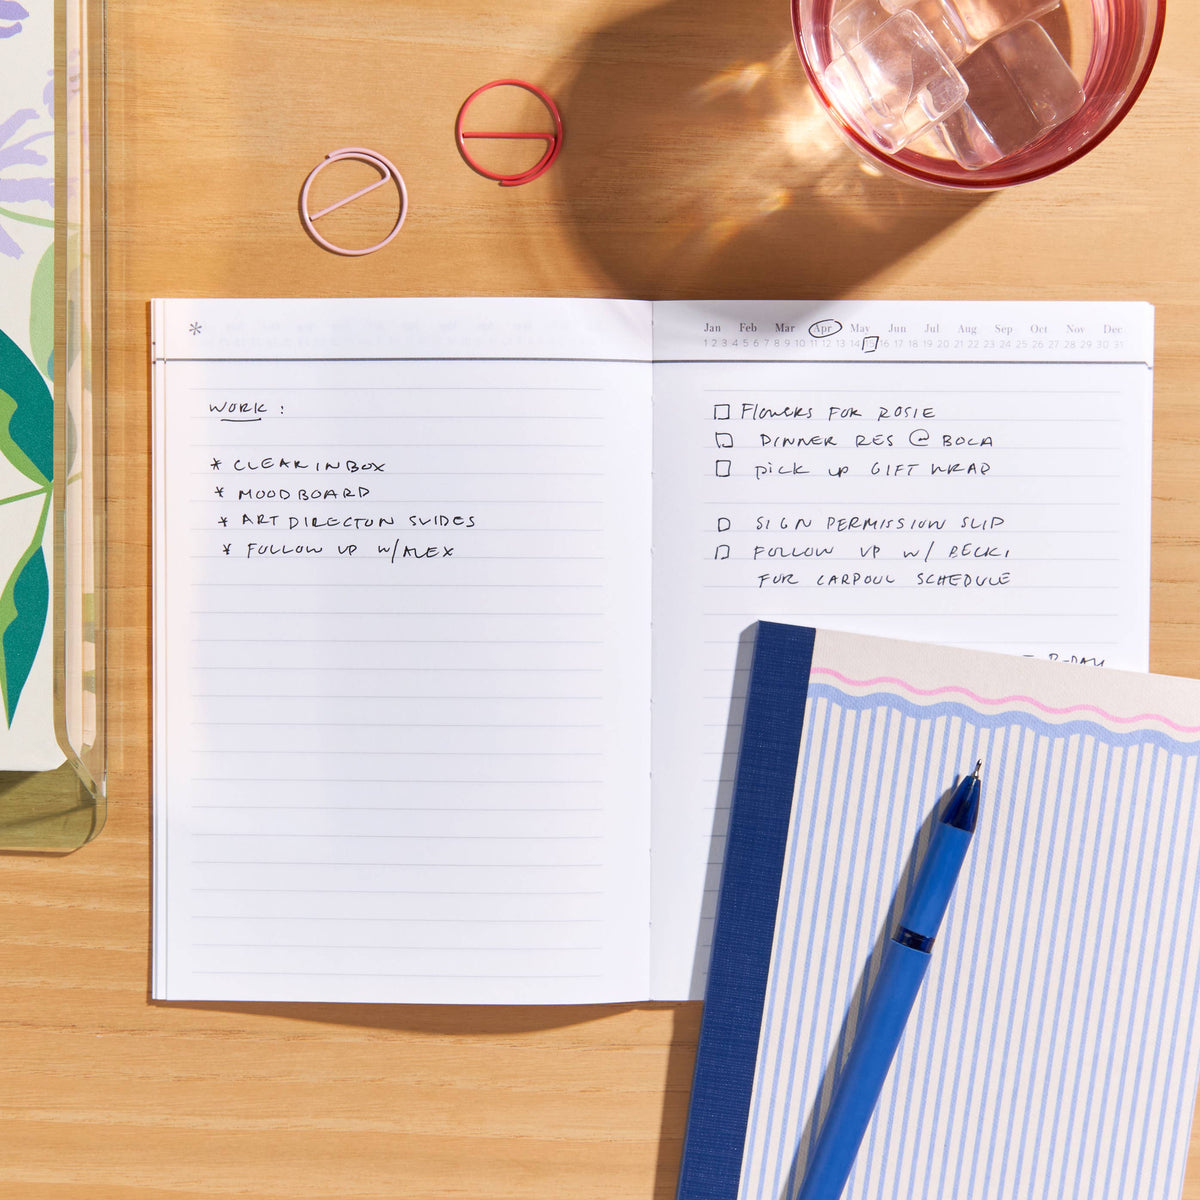 *
WORK :
* CLEAR INBOX
* MOODBOARD
* ART DIRECTON SLIDES
* FOLLOW UP W/ALEX
Jan Feb Mar Apr May Jun Jul Aug Sep Oct Nov Dec
1 2 3 4 5 6 7 8 9 10 11 12 13 14 15 16 17 18 19 20 21 22 23 24 25 26 27 28 29 30 31
Flowers FOR ROSIE
DINNER RES @ BOCA
pick up GIFT WRAP
SIGN PERMISSION SLIP
FOLLOW UP W/ BECKI
FOR CARPOOL SCHEDULE
B-DAY